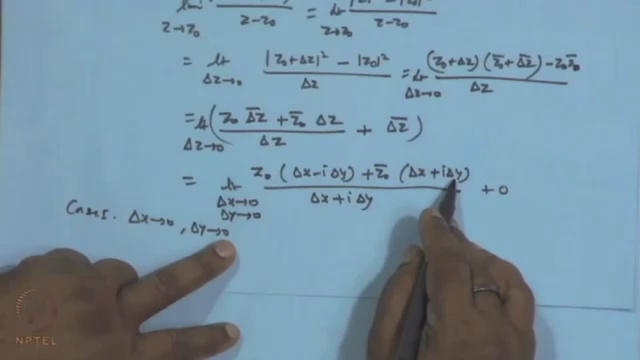 lim z→z₀ z-z₀ = lt z→z₀ z-z₀
= lt Δz→0 |z₀+Δz|² - |z₀|² / Δz = lt Δz→0 (z₀+Δz)(z̄₀+Δ̄z̄) - z₀z̄₀ / Δz
= lt Δz→0 ( z₀ Δ̄z̄ + z̄₀ Δz / Δz + Δ̄z̄ )
= lt Δx→0 Δy→0 z₀ (Δx-iΔy) + z̄₀ (Δx+iΔy) / Δx+iΔy + 0
Case I. Δx→0, Δy→0
NPTEL